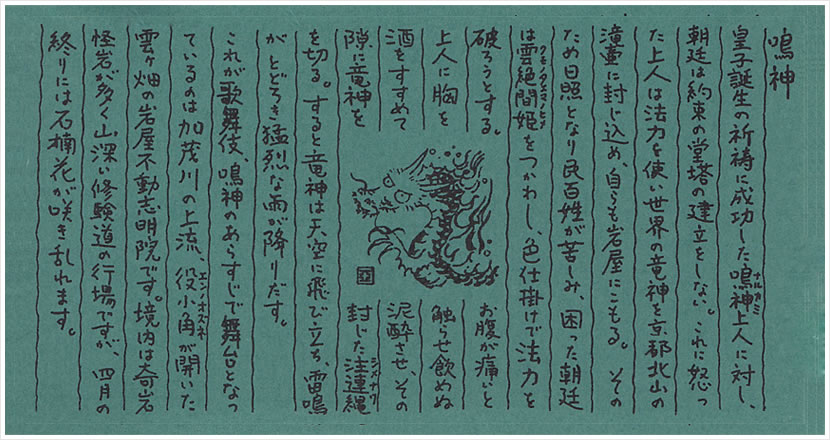 鳴神
皇子誕生の祈祷に成功した鳴神上人に対し、
ナルカミ
朝廷は約束の堂塔の建立をしない。これに怒っ
た上人は法力を使い世界の竜神を京都北山の
滝壷に封じ込め、自らも岩屋にこもる。その
ため日照となり民百姓が苦しみ、困った朝廷
は雲絶間姫をつかわし、色仕掛けで法力を
クモノタエマノヒメ
破ろうとする。 お腹が痛いと
上人に胸を 触らせ飲めぬ
酒をすすめて 泥酔させ、その
隙に竜神を 封じた注連縄
シメナワ
を切る。すると竜神は天空に飛び立ち、雷鳴
がとどろき猛烈な雨が降りだす。
これが歌舞伎、鳴神のあらすじで舞台となっ
ているのは加茂川の上流、役小角が開いた
エンノオズネ
雲ヶ畑の岩屋不動志明院です。境内は奇岩
怪岩が多く山深い修験道の行場ですが、四月の
終りには石楠花が咲き乱れます。